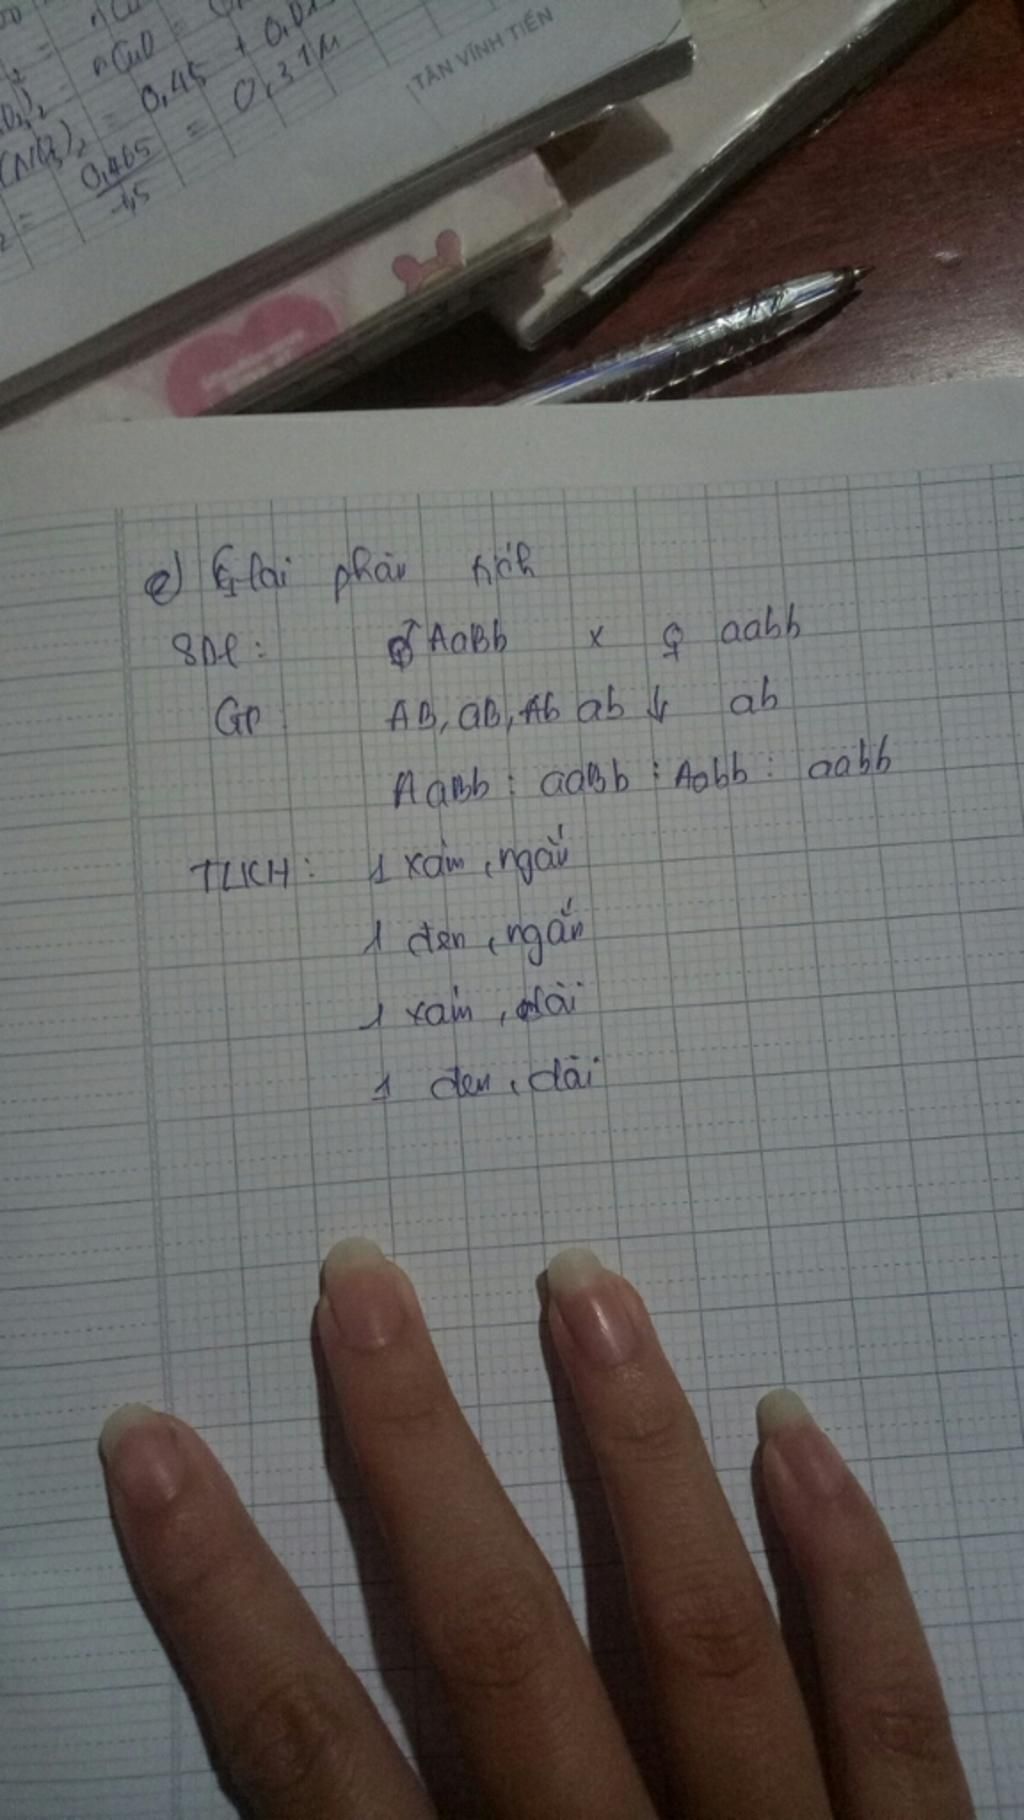 nCuO =
0,45 + 0,01
0,465 / 1,5 = 0,31M
TÂN VĨNH TIẾN
e) Lai phân tích
SĐL: ♂ AaBb x ♀ aabb
GP AB, aB, Ab ab ↓ ab
AaBb : aaBb : Aabb : aabb
TLKH: 1 xám, ngắn
1 đen, ngắn
1 xám, dài
1 đen, dài